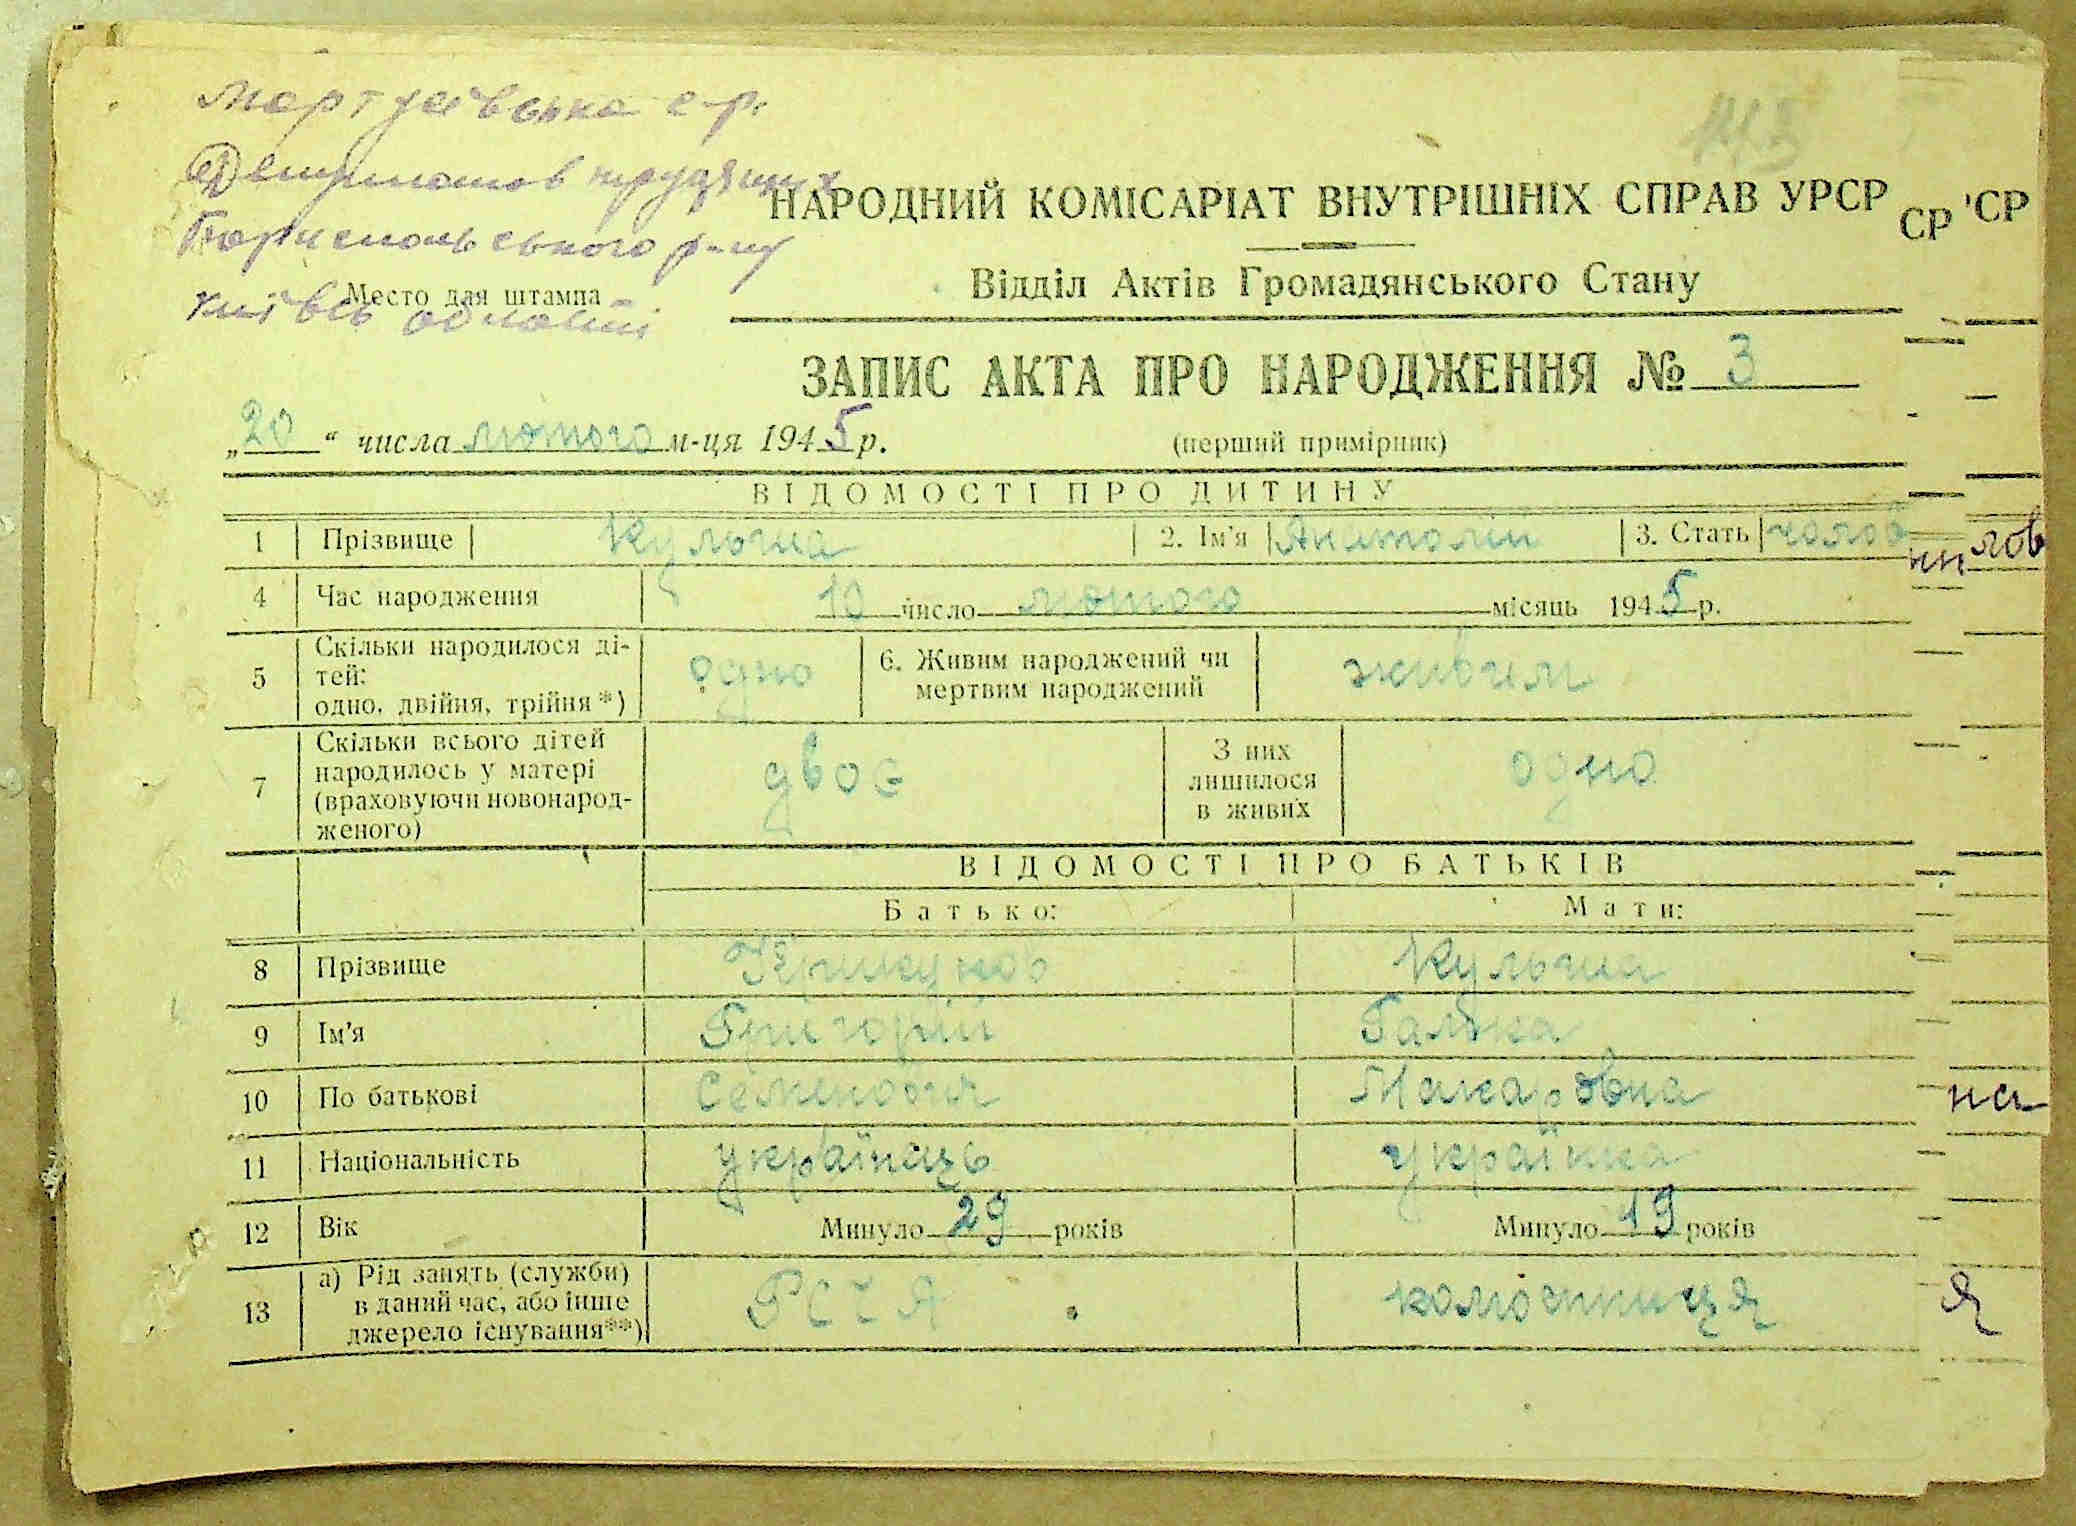 Мартусівська с-р.
Депутатов трудящих
Бориспольського р-ну
Київсь області
Место для штампа
НАРОДНИЙ КОМІСАРІАТ ВНУТРІШНІХ СПРАВ УРСР
СР 'СР
Відділ Актів Громадянського Стану
ЗАПИС АКТА ПРО НАРОДЖЕННЯ № 3
„20“ числа лютого м-ця 1945 р. (перший примірник)
ВІДОМОСТІ ПРО ДИТИНУ
1 Прізвище Кульчиа 2. Ім'я Анатолій 3. Стать чолов
4 Час народження 10 число лютого місяць 1945 р.
5 Скільки народилося ді-
тей:
одно, двійня, трійня*) одно 6. Живим народжений чи
мертвим народжений живим
7 Скільки всього дітей
народилось у матері
(враховуючи новонарод-
женого) двоє З них
лишилося
в живих одно
ВІДОМОСТІ ПРО БАТЬКІВ
Батько: Мати:
8 Прізвище
9 Ім'я Григорій Галька
10 По батькові Семенович Макаровна
11 Національність українець українка
12 Вік Минуло 29 років Минуло 19 років
13 а) Рід занять (служби)
в даний час, або інше
джерело існування**) РСЧА колгоспниця